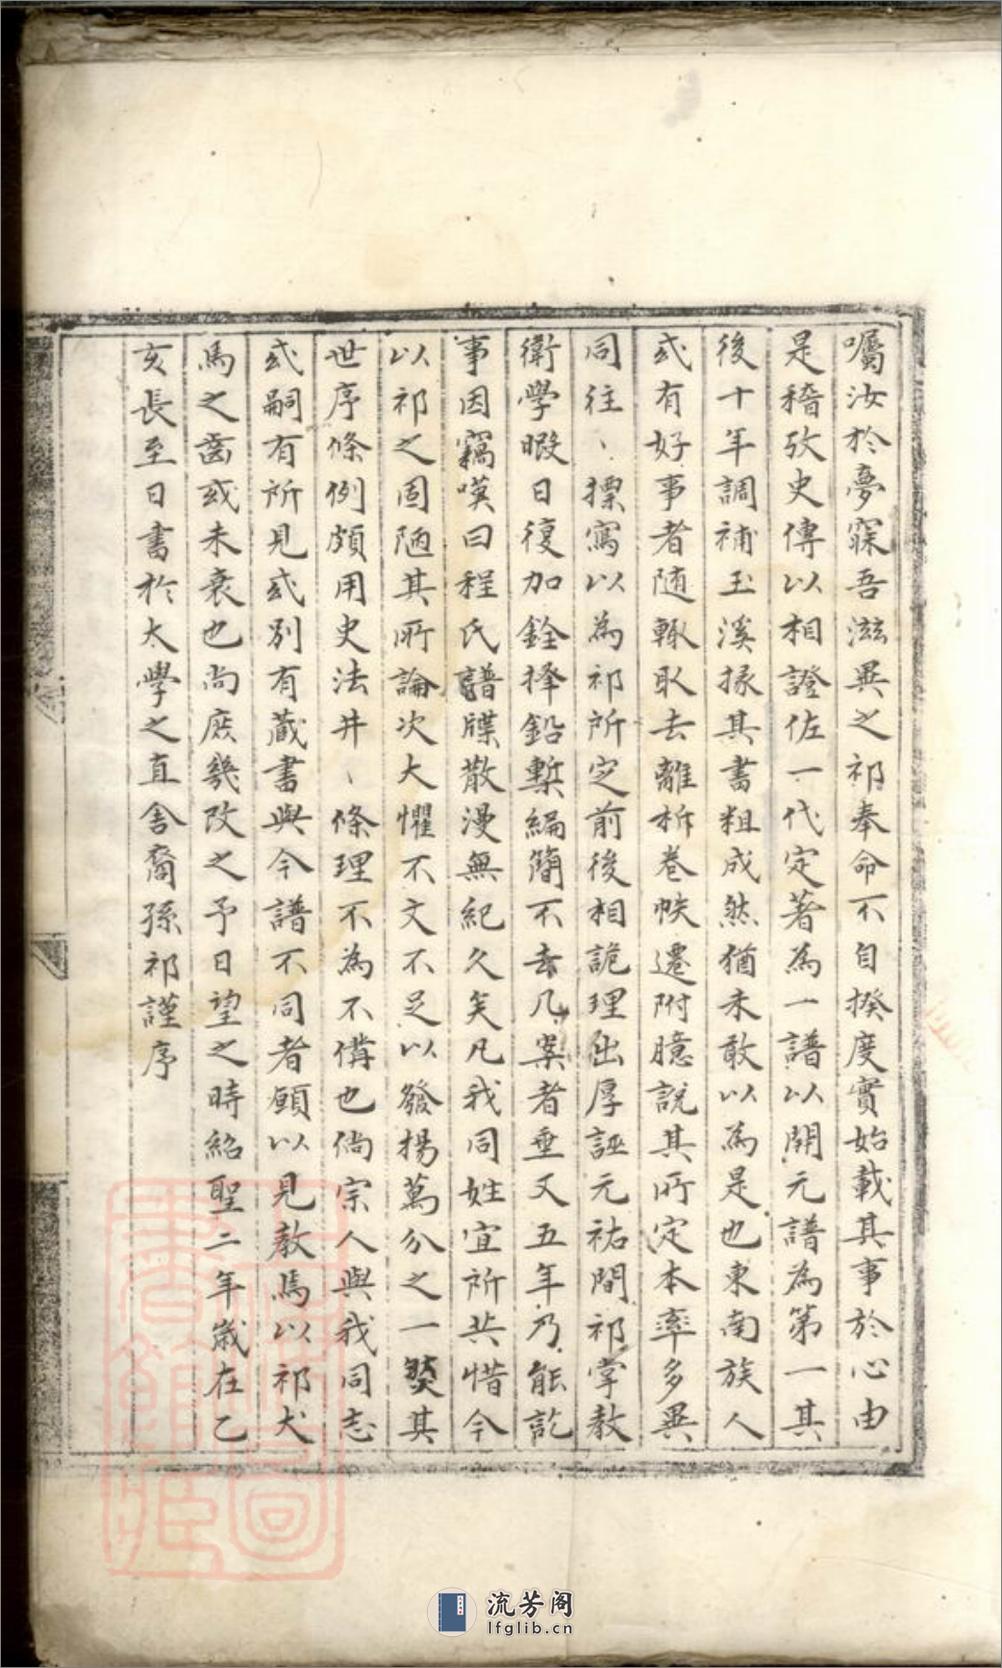 囑汝於夢寐吾滋異之祁奉命不自揆度實始載其事於心由
是稽攷史傳以相證佐一代定著為一譜以開元譜為第一其
後十年調補玉溪掾其書粗成然猶未敢以為是也東南族人
或有好事者随輒取去離析卷帙遷附臆説其所定本率多異
同往、摽寫以為祁所定前後相詭理出厚誣元祐間祁掌教
衛學暇日復加銓擇鉛槧編簡不去几案者垂又五年乃能訖
事因竊嘆曰程氏譜牒散漫無紀久矣凡我同姓宜所共惜今
以祁之固陋其所論次大懼不文不足以發揚萬分之一獎其
世序條例頗用史法井、條理不為不備也倘宗人與我同志
或嗣有所見或別有蔵書與今譜不同者願以見教焉以祁犬
馬之齒或未衰也尚庶幾改之予日望之時紹聖二年歲在乙
亥長至日書於太學之直舎裔孫祁謹序
流芳阁
lfglib.cn